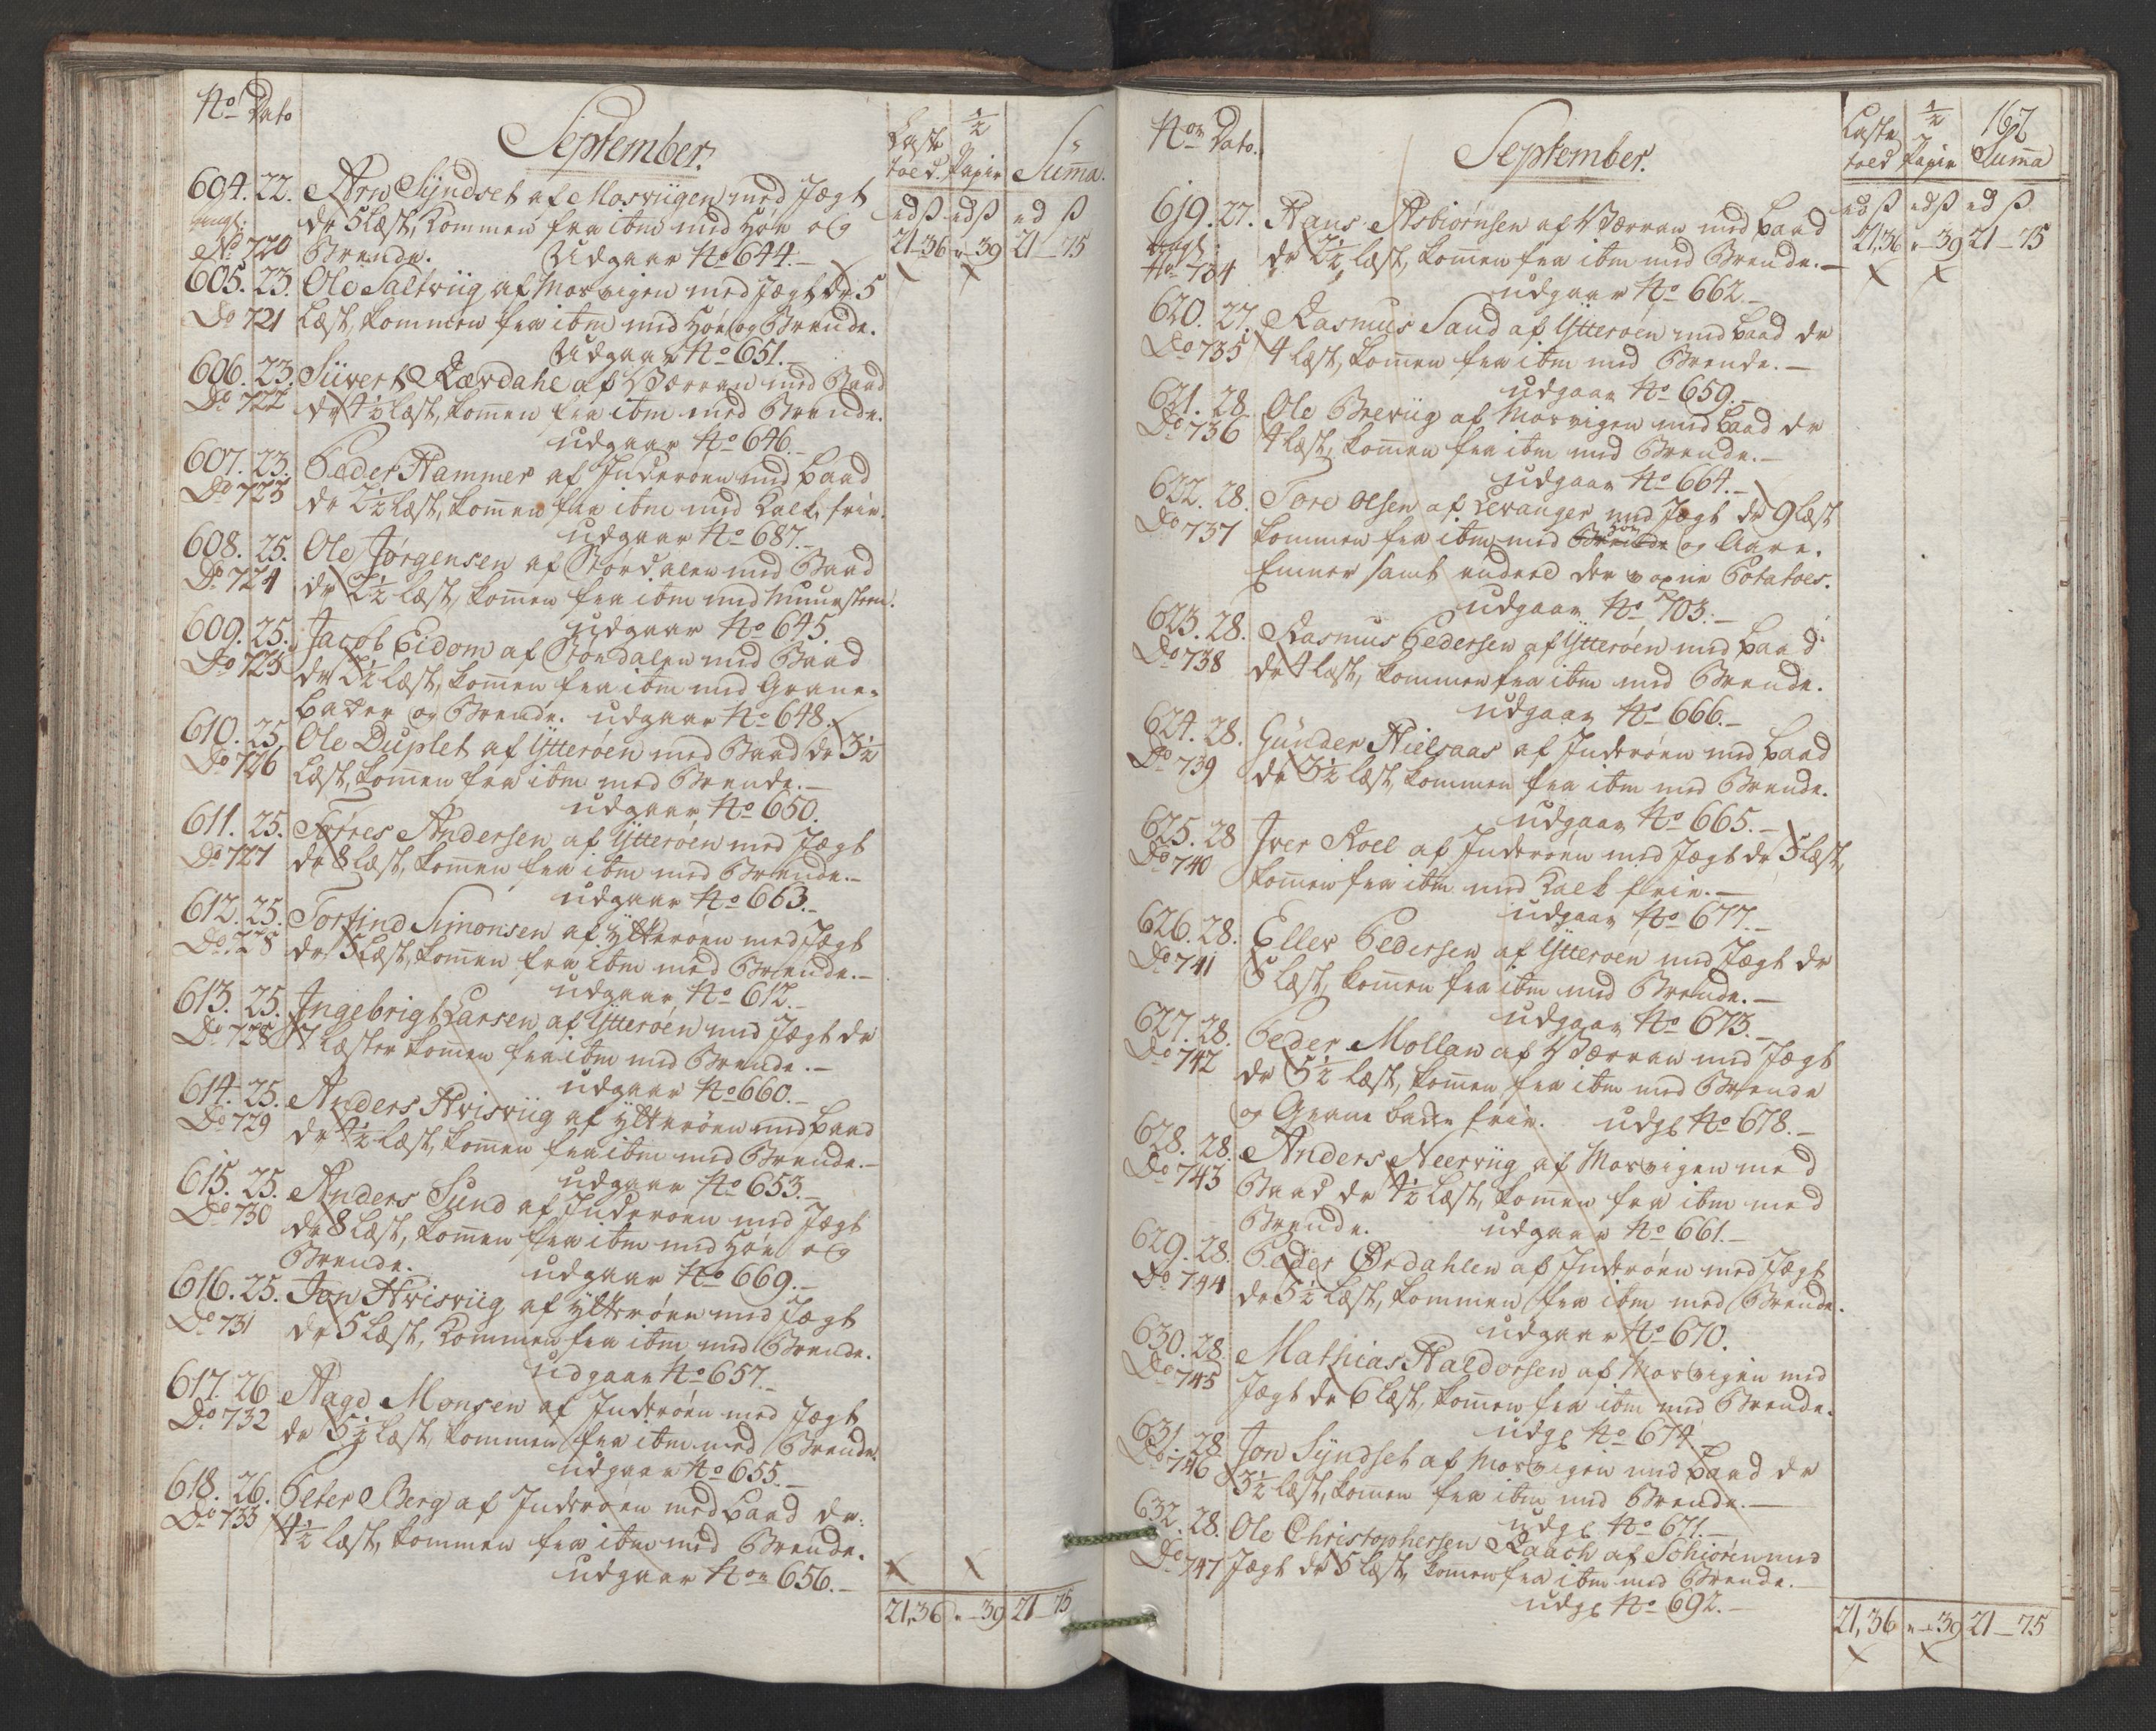 No Dato
September.
Laste toed. ½ Papir Suma.
rd ß rd ß rd ß
21-36 "-39 21-75
604. 22. Arn Syndset af Mosviigen med Jægt
dr 5 Læst, Kommen fra ibm med Høe og
No 720 Brende. Udgaar No 644.-
605. 23. Ole Saltviig af Mosvigen med Jægt dr 5
Do 721 Læst, kommen fra ibm med Høe og Brende.
Udgaar No 651.-
606. 23. Siivert Kærdahl af Værran med Baad
Do 722 dr 4½ Læst, kommen fra ibm med Brende.
udgaar No 646.-
607. 23. Peder Hammer af Inderøen med Baad
Do 723 dr 2½ Læst, kommen fra ibm med Kalk, frie.
udgaar No 687.-
608. 25. Ole Jørgensen af Størdalen med Baad
Do 724 dr 2½ læst, kommen fra ibm med Muursteen.
udgaar No 645.
609. 25. Jacob Eidom af Stordalen med Baad
Do 725 dr 2½ Læst, kommen fra ibm med Grane-
Bader og Brende. udgaar No 648.
610. 25 Ole Duplet af Ytterøen med Baad dr 3½
Do 726 Læst, kommen fra ibm med Brende.-
udgaar No 650.
611. 25. Torres Andersen af Ytterøen med Jægt
Do 727 dr 8 Læst, kommen fra ibm med Brende.-
udgaar No 663.-
612. 25. Torfind Simonsen af Ytterøen med Jægt
Do 728 dr 5 Læst, kommen fra ibm med Brende.-
udgaar No 612.-
613. 25. Ingebrigt Larsen af Ytterøen med Jægt dr
Do 728 7 Læster kommen fra ibm med Brende.-
udgaar No 660.-
614. 25. Anders Hvisviig af Ytterøen med Baad
Do 729 dr 4½ Læst, kommen fra ibm med Brende.-
udgaar No 653.-
615. 25. Anders Sund af Inderøen med Jægt
Do 730 dr 8 Læst, kommen fra ibm med Høe og
Brende. udgaar No 669.-
616. 25. Jon Hvisviig af Ytterøen med Jægt
Do 731 dr 5 Læst, Kommen fra ibm med Brende.
udgaar No 657.-
617. 26 Aage Monsen af Inderøen med Jægt
Do 732 dr 5½ Læst, kommen fra ibm med Brende.
udgaar No 655.-
618. 26. Peter Berg af Inderøen med Baad dr
Do 733 4½ læst, kommen fra ibm med Brende.
udgaar No 656.-
21,36 "-39 21-75
167
Nor Dato.
September.
Laste toed ½ Papir Suma
rd ß rd ß rd ß
21,36 "-39 21-75
619. 27. Hans Asbiørnsen af Værran med Baad
No 734 dr 2½ læst, kommen fra ibm med Brende.-
udgaar No 662.-
620. 27. Rasmus Sand af Ytterøen med Baad dr
Do 735 4 læst, kommen fra ibm med Brende.-
udgaar No 659.-
621. 28. Ole Breviig af Mosvigen med Baad dr
Do 736 4 læst, kommen fra ibm med Brende.-
udgaar No 664.-
622. 28. Tore Olsen af Levanger med Jægt dr 9 læst
Do 737 kommen fra ibm med Høe og Aare.
Emner samt endeel der voxne Potatoes.
udgaar No 703.-
623. 28. Rasmus Pedersen af Ytterøen med Baad
Do 738 dr 4 læst, kommen fra ibm med Brende.
udgaar No 666.-
624. 28. Günder Hielsaas af Inderøen med Baad
Do 739 dr 3½ læst, kommen fra ibm med Brende.
udgaar No 665.-
625. 28 Iver Roel af Inderøen med Jægt dr 5 læst,
Do 740 kommen fra ibm med Kalk frie.-
udgaar No 677.-
626. 28. Eller Pedersen af Ytterøen med Jægt dr
Do 741 8 læst, kommen fra ibm med Brende.-
udgaar No 673.-
627. 28. Peder Mollan af Værran med Jægt
Do 742 dr 5½ læst, kommen fra ibm med Brende
og Grane bader frie. udg No 678.-
628. 28. Anders Neerviig af Mosvigen med
Do 743 Baad dr 4½ Læst, kommen fra ibm med
Brende. udgaar No 661.-
629. 28. Peder Ørdahlen af Inderøen med Jægt
Do 744 dr 5½ Læst, kommen fra ibm med Brende.
udgaar No 670.
630. 28. Mathias Haldorsen af Mosvigen med
Do 745 Jægt dr 6 læst, kommen fra ibm med Brende.
udg No 674
631. 28. Jon Syndset af Mosvigen med Baad dr
Do 746 3½ læst, kommen fra ibm med Brende.-
udg No 671.-
632. 28. Ole Christophersen Raach af Schiøren med
Do 747 Jægt dr 5 læst, kommen fra ibm med Brende.-
udg No 692.-
21,36 "-39 21-75